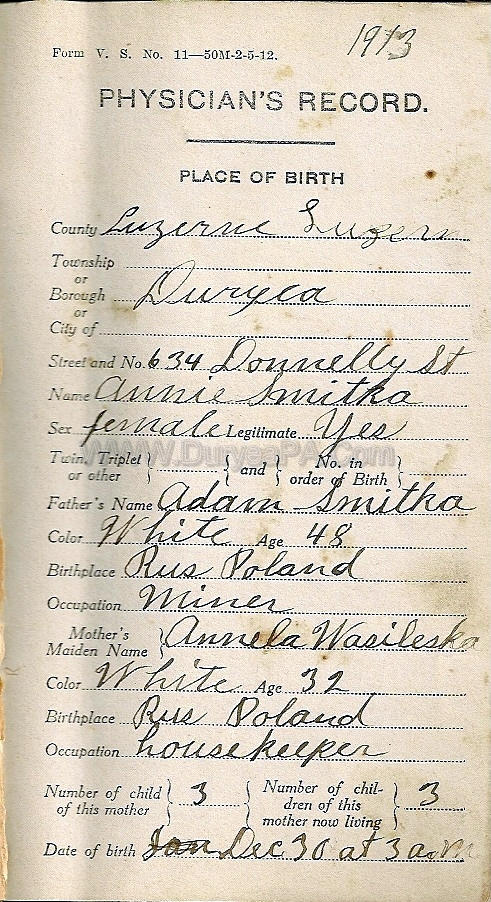 1913
Form V. S. No. 11—50M-2-5-12.
PHYSICIAN'S RECORD.
PLACE OF BIRTH
County Luzerne Luzern
Township
or
Borough Duryea
or
City of
Street and No. 634 Donnelly St
Name Annie Smitka
Sex female Legitimate Yes
WWW.DuryeaPA.Com
Twin, Triplet or other } and { No. in order of Birth }
Father's Name Adam Smitka
Color White Age 48
Birthplace Rus Poland
Occupation Miner
Mother's Maiden Name } Annela Wasileska
Color White Age 32
Birthplace Rus Poland
Occupation housekeeper
Number of child of this mother } 3 { Number of children of this mother now living } 3
Date of birth Jan Dec 30 at 3 a.m